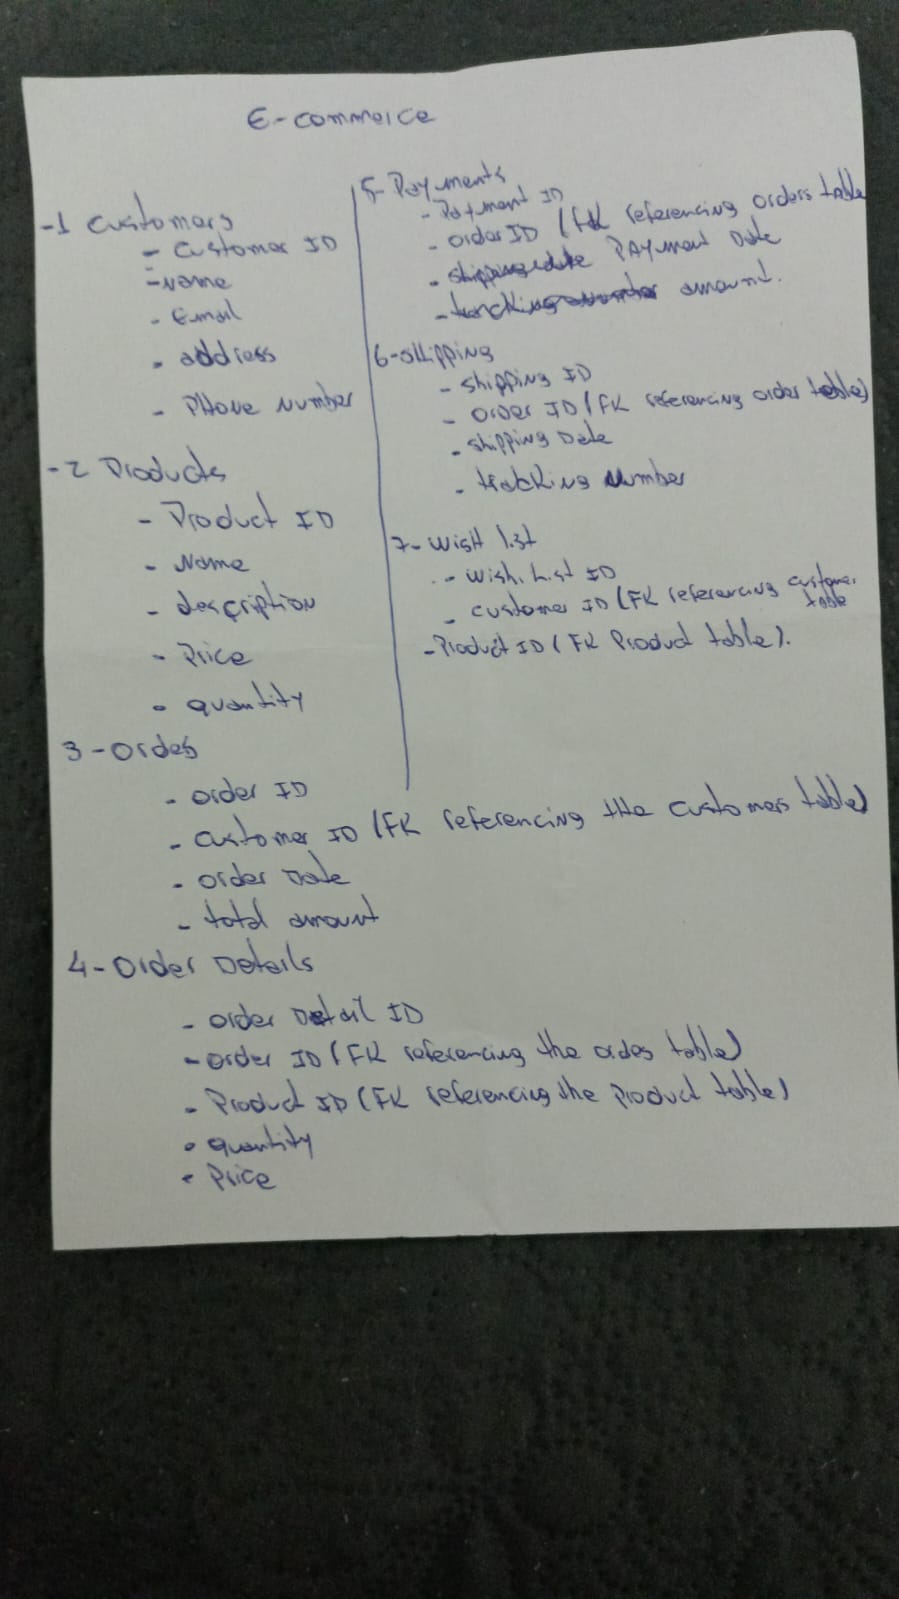 E-commerce
-1 Customers
- Customer ID
- Name
- Email
- address
- Phone Number
-2 Products
- Product ID
- Name
- description
- Price
- quantity
3-Ordes
- order ID
- customer ID (FK referencing the customers table)
- order Date
- total amount
4-Order Details
- order Detail ID
- order ID (FK referencing the ordes table)
- Product ID (FK referencing the Product table)
- quantity
- Price
5- Payments
- Payment ID
- order ID (FK referencing orders table
- Payment Date
- amount.
6-Shipping
- Shipping ID
- order ID (FK referencing order table)
- Shipping Date
- tracking Number
7- Wish list
- Wish List ID
- customer ID (FK referencing customer
table
- Product ID (FK Product table).